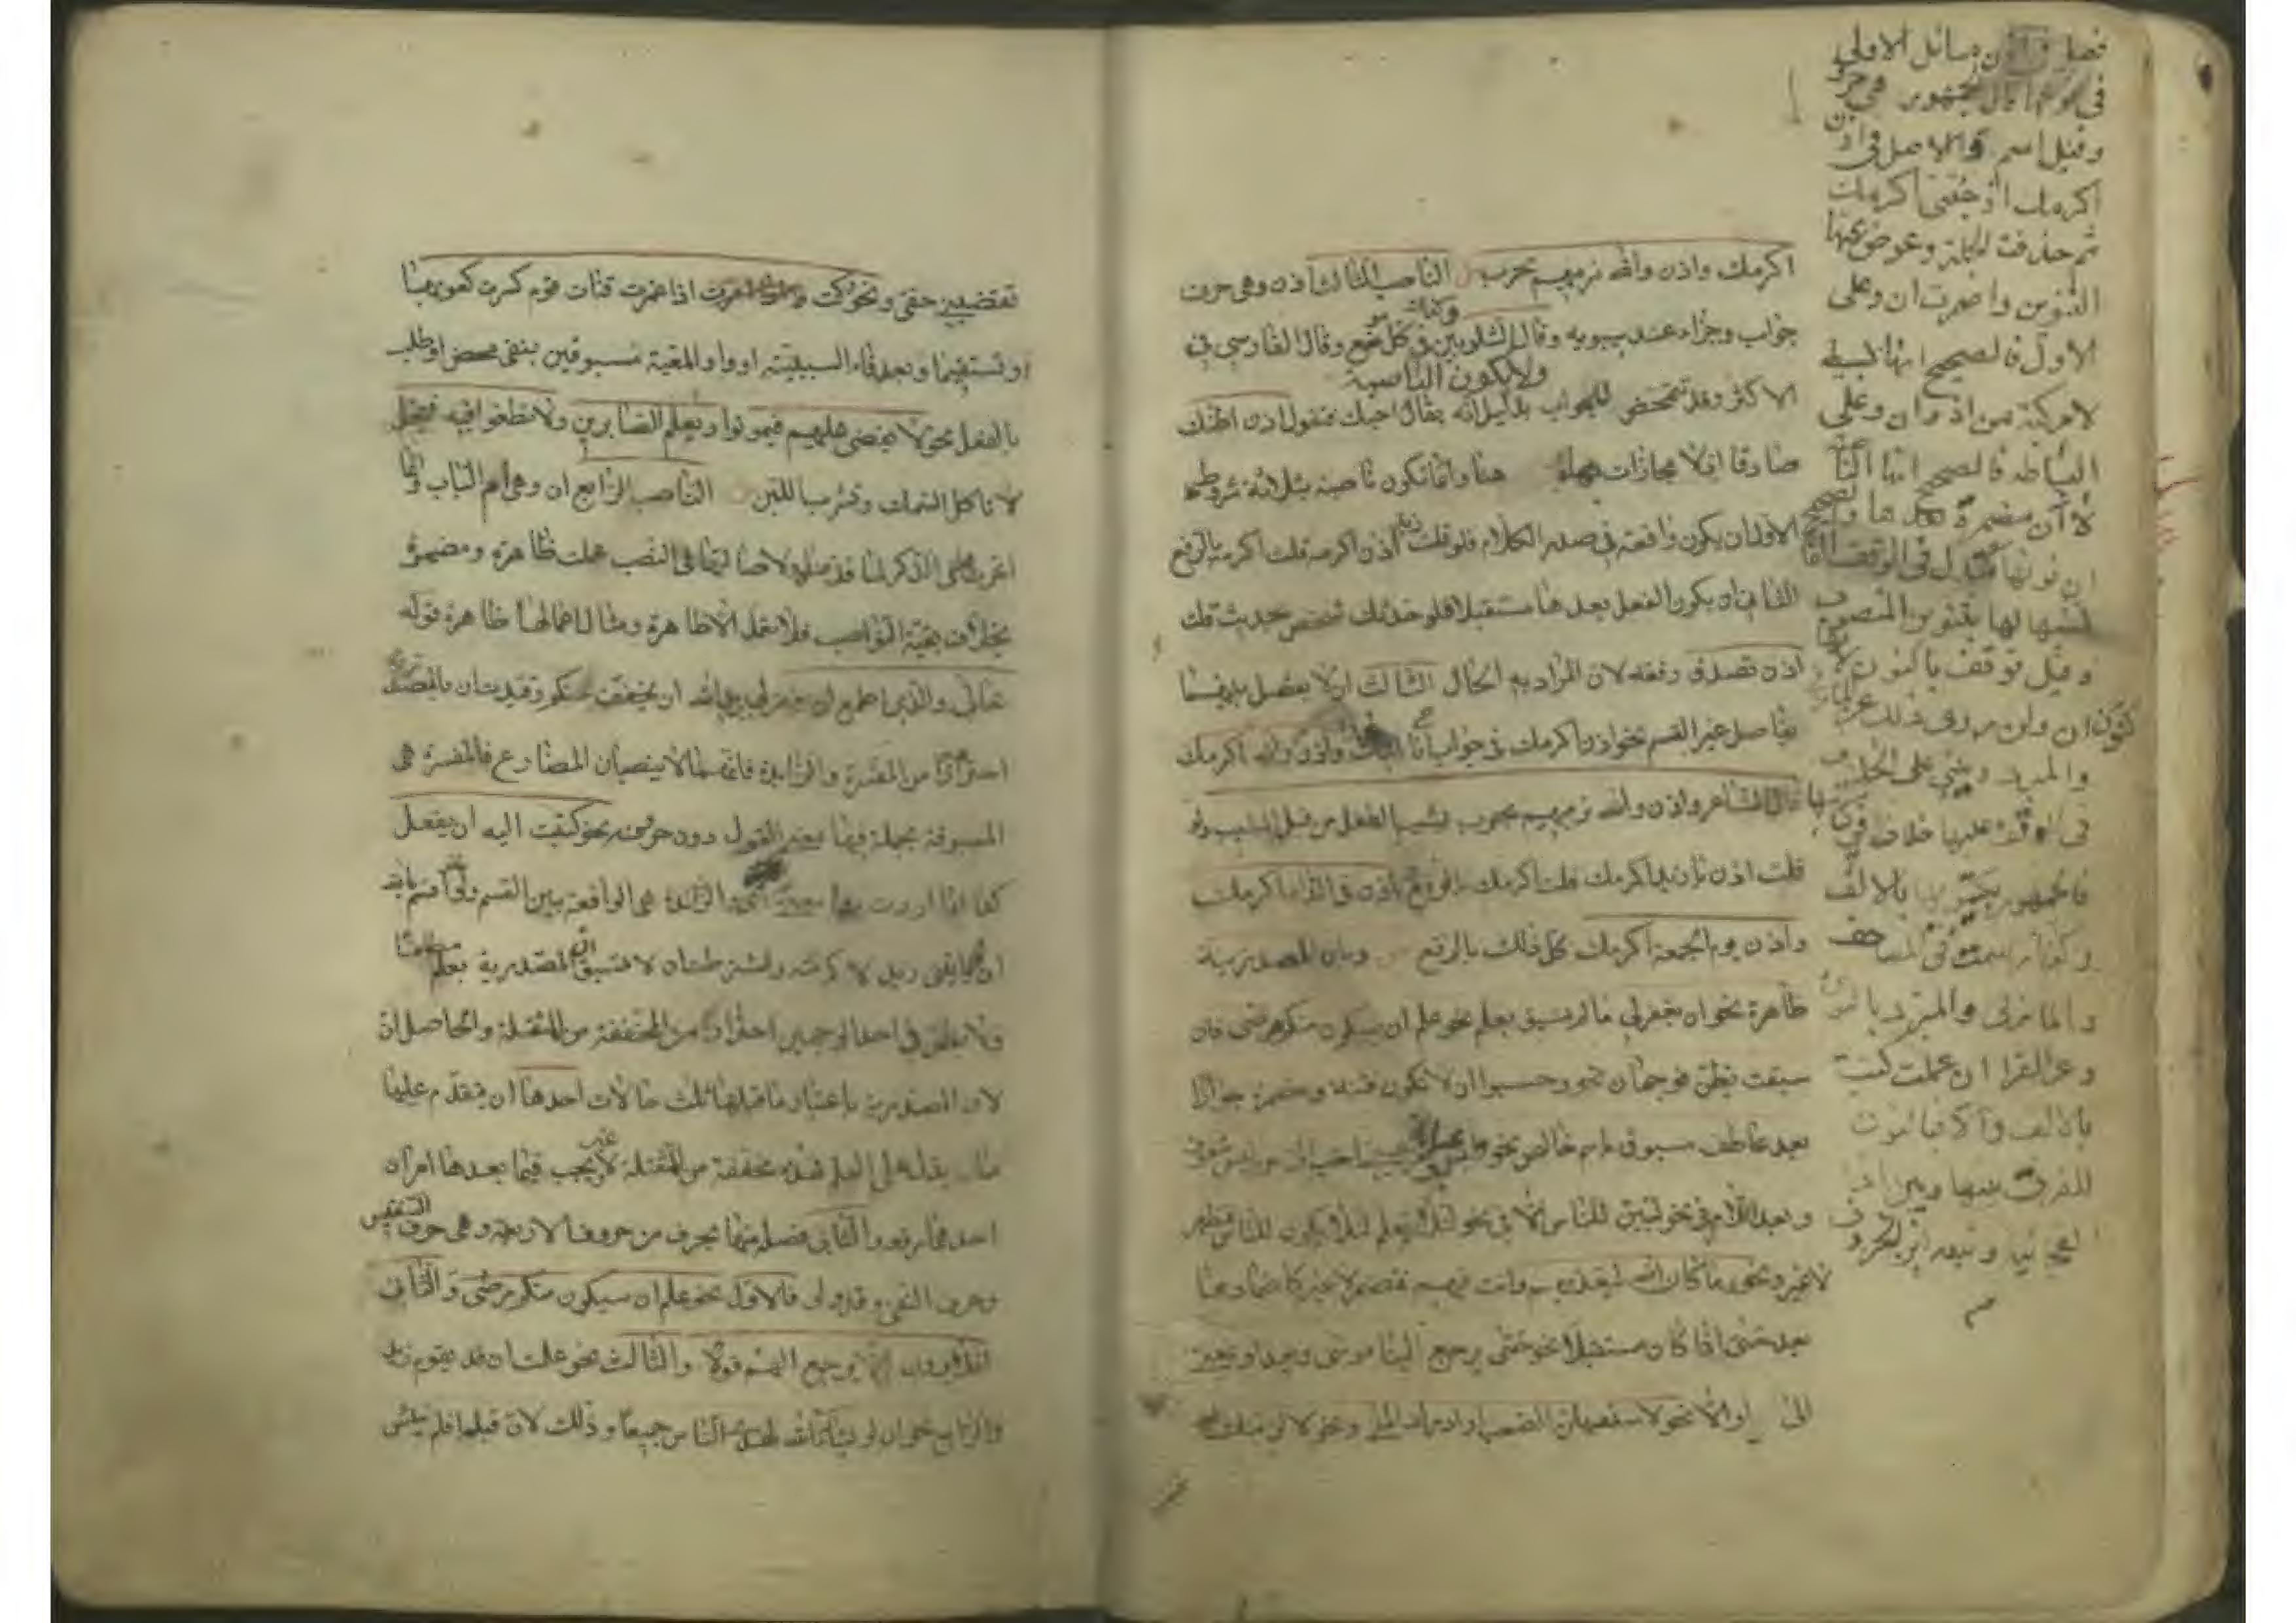 اكرمك واذن والله نرميهم بحرب الناصب الثالث اذن وهى حرف
جواب وجزاء عند سيبويه وقال الشلوبين فى كل موضع وقال الفارسي في
ولا يكون الناصبة
الاكثر وقد تتمحض للجواب بدليل انه يقال احبك فتقول اذن اظنك
صادقا اذ لا مجازات هنا وانما تكون ناصبة بثلاثة شروط
الاول ان يكون واقعة في صدر الكلام فلو قلت زيد اذن اكرمه قلت اكرمه بالرفع
الثانى ان يكون الفعل بعدها مستقبلا فلو حدثك شخص بحديث قلت
اذن تصدق رفعته لان المراد به الحال الثالث ان لا يفصل بينهما
بفاصل غير القسم نحو اذن اكرمك فى جواب انا اتيك واذن والله اكرمك
قال الشاعر واذن والله نرميهم بحرب يشيب الطفل من قبل المشيب ولو
قلت اذن يا زيد اكرمك قلت اكرمك بالرفع واذن فى الدار اكرمك
واذن يوم الجمعة اكرمك كل ذلك بالرفع وبان المصدرية
ظاهرة نحو ان يغفر لي ما لم تسبق بعلم نحو علم ان سيكون منكم مرضى فان
سبقت بظن فوجهان نحو وحسبوا ان لا تكون فتنة ومضمرة جوازا
بعد عاطف مسبوق باسم خالص نحو احب الى من لبس شفوف
وبعد اللام في نحو لتبين للناس الا في نحو لئلا يعلم لئلا يكون للناس فتظهر
لا غير ونحو ما كان الله ليعذبهم وانت فيهم فتضمر لا غير كاضمارها
بعد حتى اذا كان مستقبلا نحو حتى يرجع الينا موسى وبعد او بمعنى
الى او الا نحو لاستسهلن الصعب او ادرك المنى ونحو لالزمنك او
فصل وفى اذن مسائل الاولى
فى نوعها قال الجمهور هى حرف
وقيل اسم والاصل فى اذن
اكرمك اذ جئتنى اكرمك
ثم حذفت الجملة وعوض عنها
التنوين واضمرت ان وعلى
الاول فالصحيح انها بسيطه
لا مركبة من اذ وان وعلى
البساطه فالصحيح انها الناصبة
لا ان مضمرة بعدها والصحيح
ان نونها تبدل فى الوقف الفا
لشبهها لها بتنوين المنصوب
وقيل توقف بالنون لانها
كنون ان ولن مروى ذلك عن المازنى
والمبرد ويبنى على الخلاف
فى الوقف عليها خلاف فى كتابتها
فالجمهور يكتبونها بالالف
وكذا رسمت فى المصاحف
والمازنى والمبرد بالنون
وعن الفراء ان عملت كتبت
بالالف والا فبالنون
للفرق بينها وبين اذا
وتبعه ابن الخروف
تقضيني حقى ونحو وكنت اذا غمزت قناة قوم كسرت كعوبها
او تستقيما وبعد فاء السببية او واو المعية مسبوقين بنفى محض او طلب
بالفعل نحو لا يقضى عليهم فيموتوا ويعلم الصابرين ولا تطغوا فيه فيحل
لا تاكل السمك وتشرب اللبن الناصب الرابع ان وهى ام الباب وانما
اخرت فى الذكر لما قدمناه ولاصالتها فى النصب عملت ظاهرة ومضمرة
بخلاف بقية النواصب فلا تعمل الا ظاهرة ومثال اعمالها ظاهرة قوله
تعالى والذى اطمع ان يغفر لى يريد الله ان يخفف عنكم وقيدت ان بالمصدرية
احترازا من المفسرة والزائدة فانهما لا ينصبان المضارع فالمفسرة هى
المسبوقة بجملة فيها معنى القول دون حروفه نحو كتبت اليه ان يفعل
كذا اذا اردت بها معنى اى والزائدة هى الواقعة بين القسم ولو نحو اقسم بالله
ان لو ياتنى زيد لاكرمته واشترطت ان لا تسبق المصدرية بعلم مطلقا
ولا بظن فى احد الوجهين احترازا من المخففة من الثقيلة والحاصل ان
لان المصدرية باعتبار ما قبلها ثلث حالات احدها ان يتقدم عليها
ما يدل على العلم فهذه مخففة من الثقيلة لا غير ويجب فيما بعدها امران
احدهما رفعه والثانى فصله منها بحرف من حروف اربعة وهى حرف التنفيس
وحرف النفى وقد ولو فالاول نحو علم ان سيكون منكم مرضى والثانى
افلا يرون ان لا يرجع اليهم قولا والثالث نحو علمت ان قد يقوم زيد
والرابع نحو ان لو يشاء الله لهدى الناس جميعا وذلك لان قبلها افلم ييئس